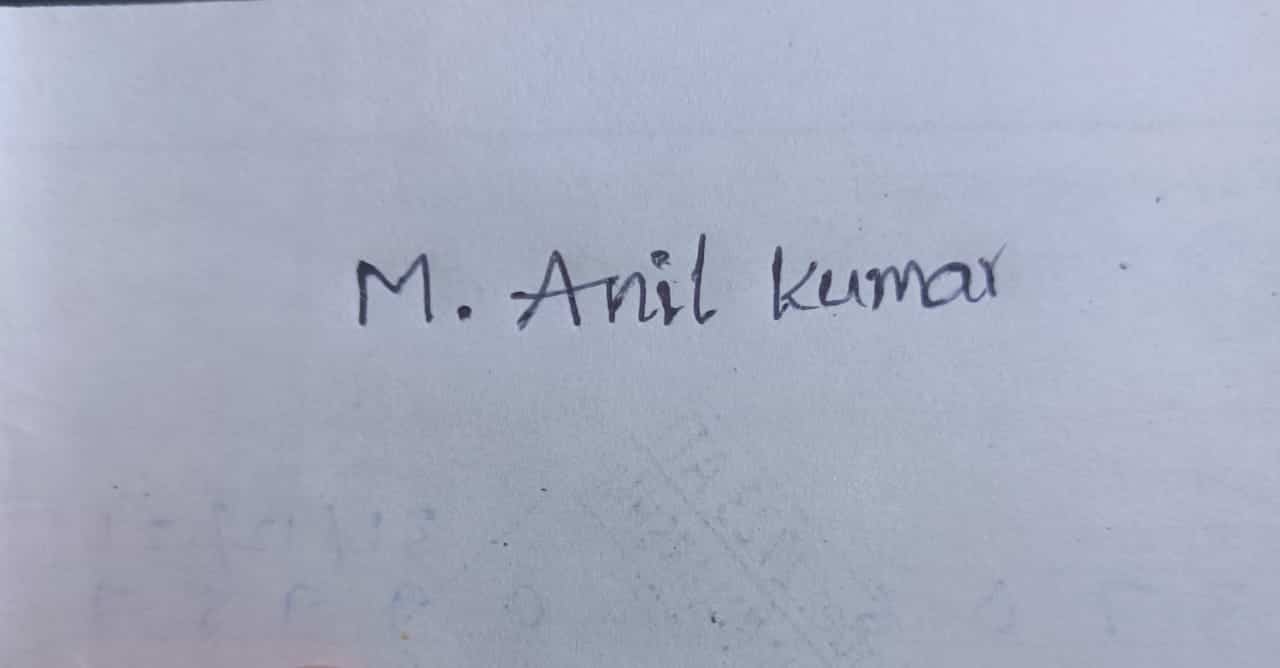 M. Anil Kumar